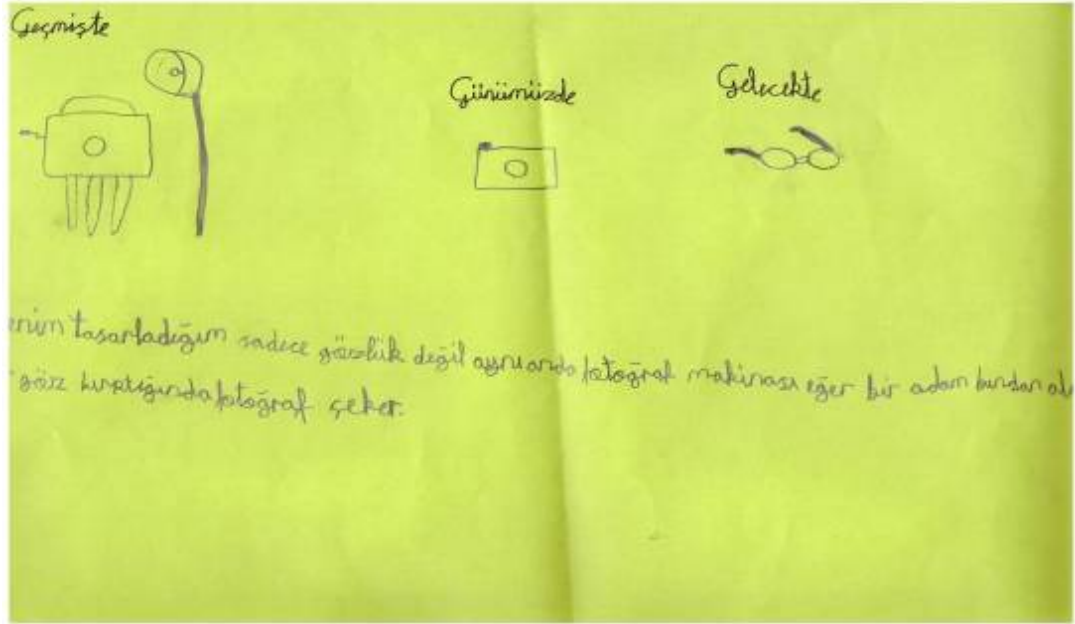 Geçmişte
Günümüzde
Gelecekte
enim tasarladığım sadece gözlük değil aynı anda fotoğraf makinası eğer bir adam bundan
göz kırptığında fotoğraf çeker.